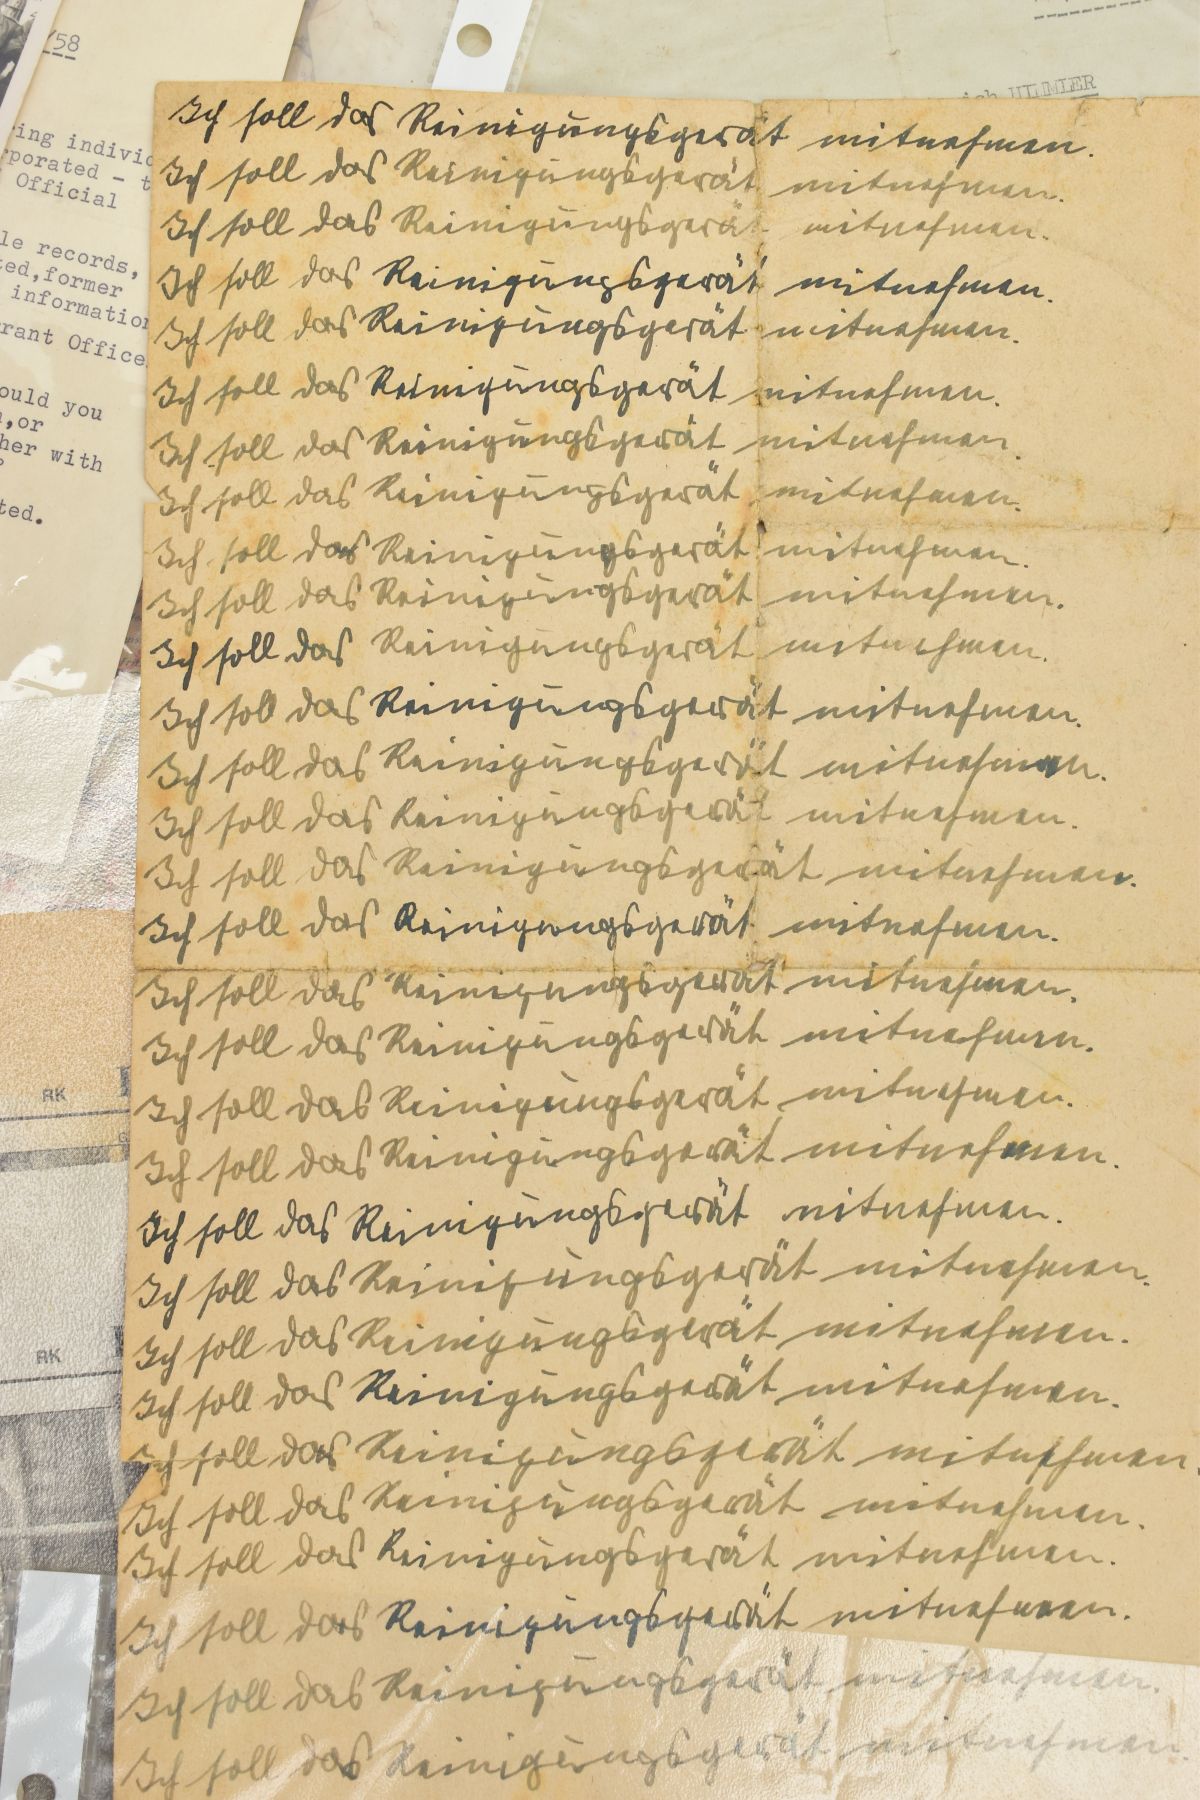 /58
HIMMLER
ing individ
porated - t
Official
le records,
ted, former
information
rant Office
ould you
,or
her with
ted.
RK
RK
Ich soll das Reinigungsgerät mitnehmen.
Ich soll das Reinigungsgerät mitnehmen.
Ich soll das Reinigungsgerät mitnehmen.
Ich soll das Reinigungsgerät mitnehmen.
Ich soll das Reinigungsgerät mitnehmen.
Ich soll das Reinigungsgerät mitnehmen.
Ich soll das Reinigungsgerät mitnehmen.
Ich soll das Reinigungsgerät mitnehmen.
Ich soll das Reinigungsgerät mitnehmen.
Ich soll das Reinigungsgerät mitnehmen.
Ich soll das Reinigungsgerät mitnehmen.
Ich soll das Reinigungsgerät mitnehmen.
Ich soll das Reinigungsgerät mitnehmen.
Ich soll das Reinigungsgerät mitnehmen.
Ich soll das Reinigungsgerät mitnehmen.
Ich soll das Reinigungsgerät mitnehmen.
Ich soll das Reinigungsgerät mitnehmen.
Ich soll das Reinigungsgerät mitnehmen.
Ich soll das Reinigungsgerät mitnehmen.
Ich soll das Reinigungsgerät mitnehmen.
Ich soll das Reinigungsgerät mitnehmen.
Ich soll das Reinigungsgerät mitnehmen.
Ich soll das Reinigungsgerät mitnehmen.
Ich soll das Reinigungsgerät mitnehmen.
Ich soll das Reinigungsgerät mitnehmen.
Ich soll das Reinigungsgerät mitnehmen.
Ich soll das Reinigungsgerät mitnehmen.
Ich soll das Reinigungsgerät mitnehmen.
Ich soll das Reinigungsgerät mitnehmen.
Ich soll das Reinigungsgerät mitnehmen.